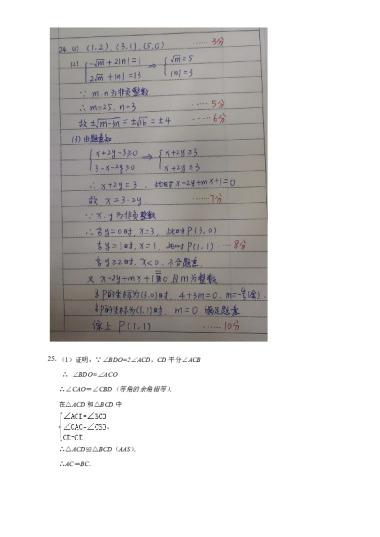 24. (1) (1,2)、(3,1)、(5,0) ……3分
(2) { -√m + 2|n| = 1
2√m + |n| = 13 ⇒ { √m = 5
|n| = 3
∵ m.n为非负整数
∴ m=25, n=3 ……5分
故 ±√m-3n = ±√16 = ±4 ……6分
(3) 由题意知
{ x+2y-3≥0
3-x-2y≥0 ⇒ { x+2y≥3
x+2y≤3
∴ x+2y=3, 此时 x-2y+mx+1=0
故 x=3-2y ……7分
∵ x.y为非负整数
∴ 当y=0时, x=3, 此时P(3,0)
当y=1时, x=1, 此时P(1,1) ……8分
当y≥2时, x<0, 不合题意.
又 x-2y+mx+1=0 且m为整数
当P的坐标为(3,0)时, 4+3m=0, m=-4/3(舍).
当P的坐标为(1,1)时, m=0 满足题意
综上 P(1,1) ……10分
25.(1)证明:∵∠BDO=2∠ACD,CD平分∠ACB
∴ ∠BDO=∠ACO
∴∠CAO=∠CBD(等角的余角相等),
在△ACD和△BCD中
∴△ACD≌△BCD(AAS),
∴AC=BC.